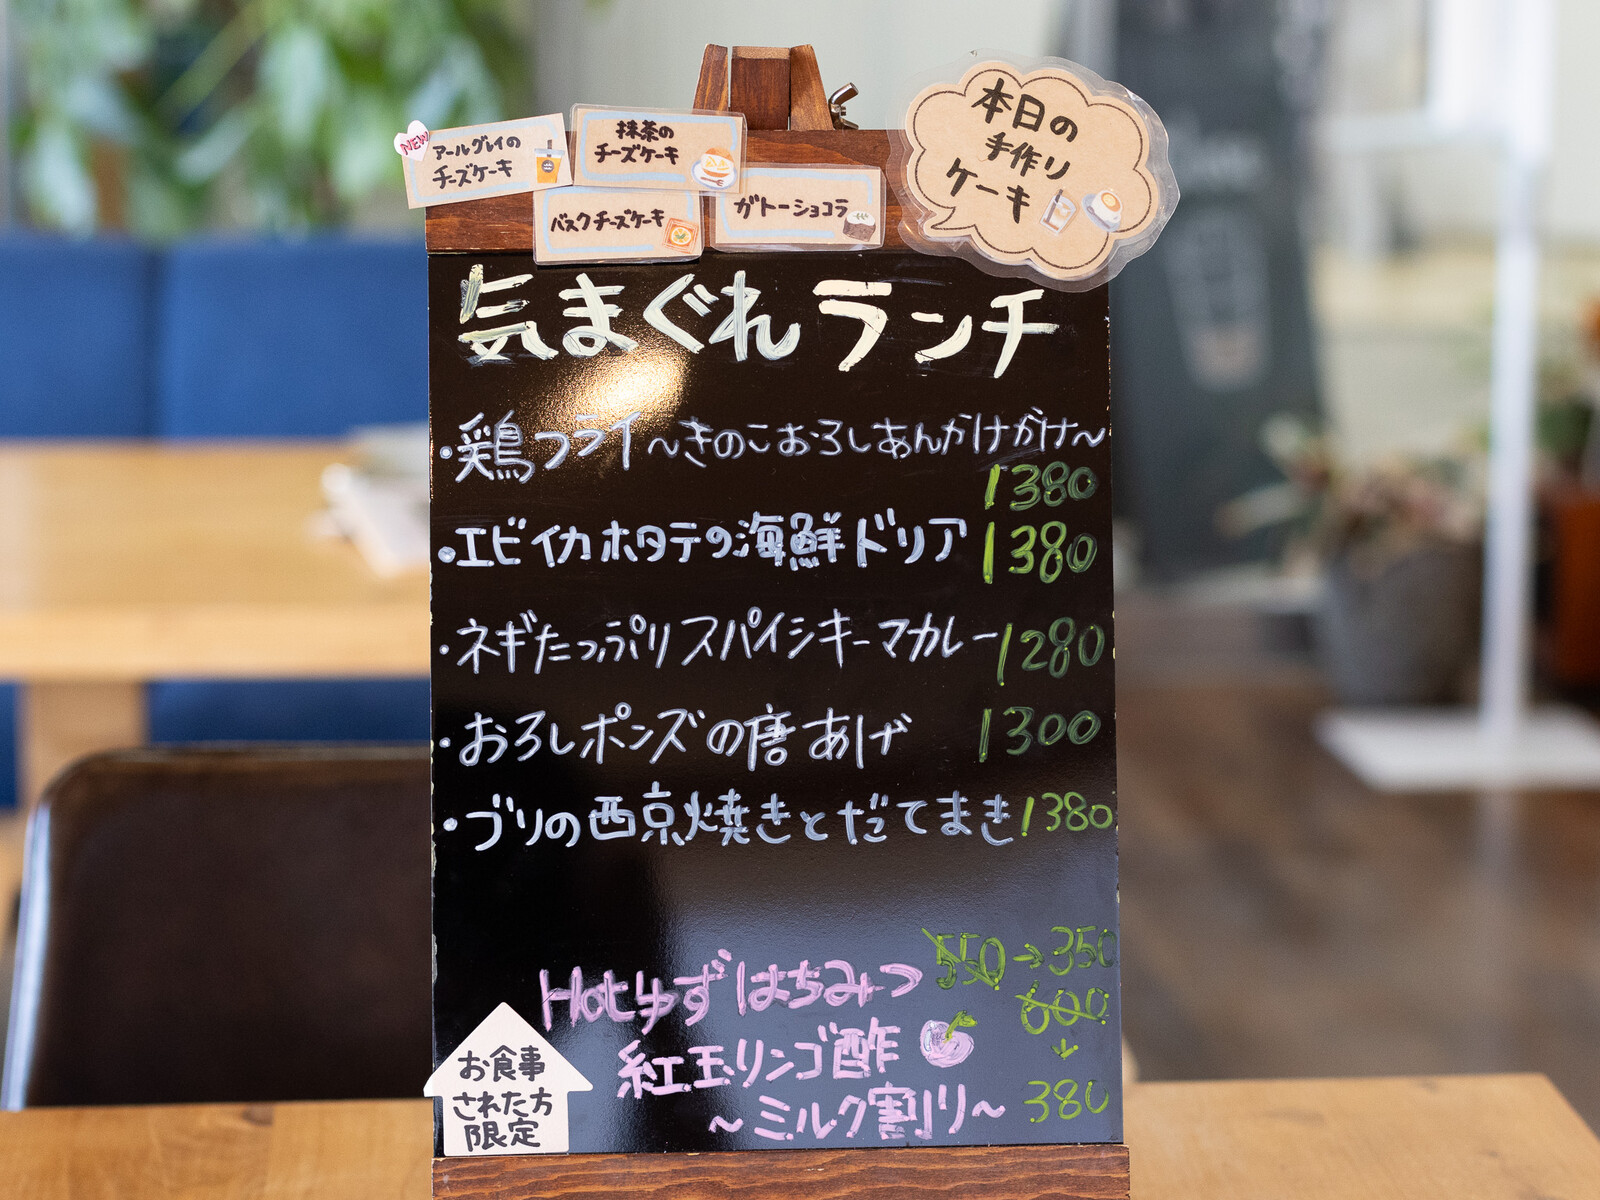 NEW
アールグレイの
チーズケーキ
抹茶の
チーズケーキ
バスクチーズケーキ
ガトーショコラ
本日の
手作り
ケーキ
気まぐれランチ
・鶏フライ～きのこおろしあんかけがけ～
1380
・エビイカホタテの海鮮ドリア 1380
・ネギたっぷりスパイシーキーマカレー 1280
・おろしポンズの唐あげ 1300
・ブリの西京焼きとだてまき 1380
Hotゆずはちみつ 550→350
紅玉リンゴ酢 600
↓
～ミルク割り～ 380
お食事
された方
限定